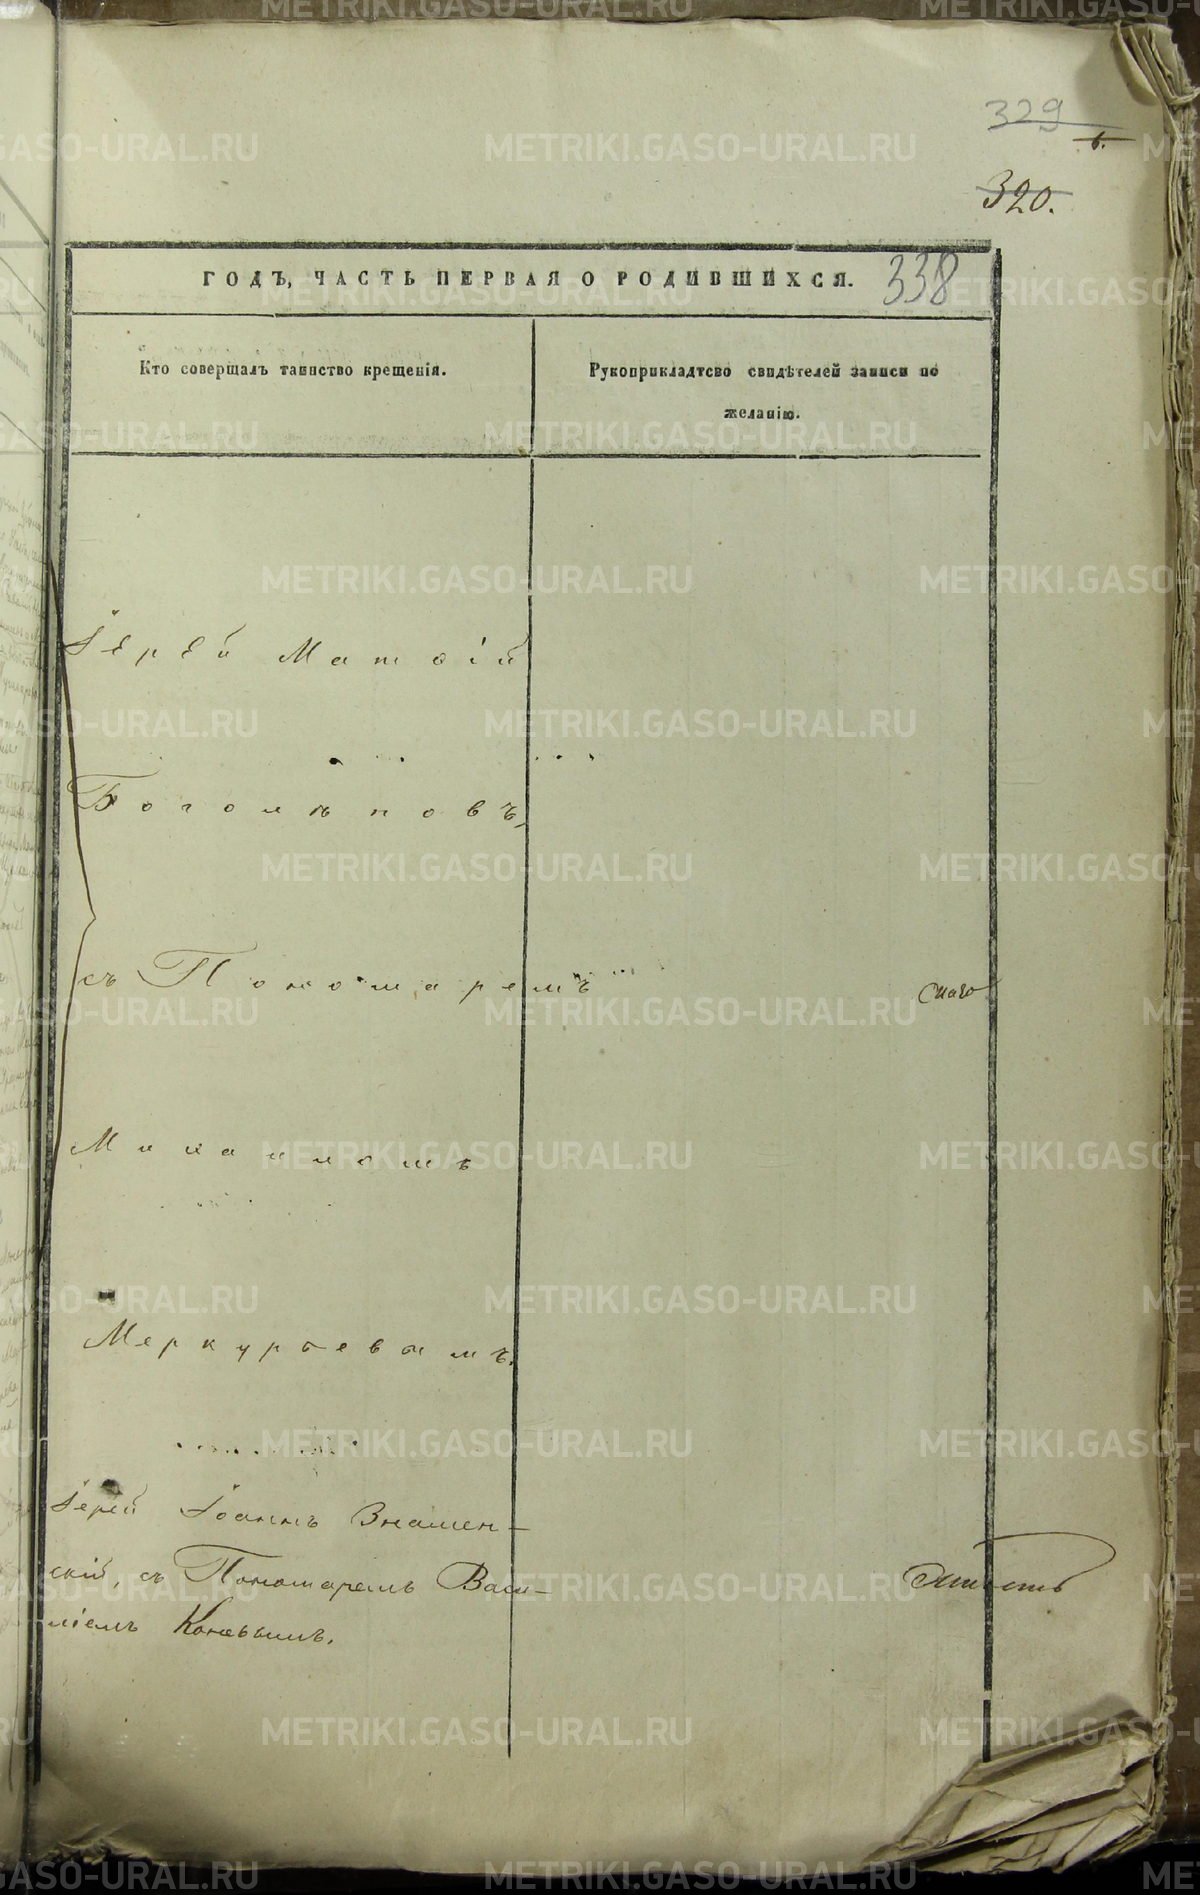 329
6.
320.
ГОДЪ, ЧАСТЬ ПЕРВАЯ О РОДИВШИХСЯ. 338
Кто совершалъ таинство крещенія.
Рукоприкладтсво свидѣтелей записи по
желанію.
Іерей Матѳій
Боголѣповъ,
съ Пономаремъ
Михаиломъ
Меркурьевымъ.
Іерей Іоаннъ Знамен-
скій, съ Пономаремъ Васи-
ліемъ Коневымъ.
METRIKI.GASO-URAL.RU